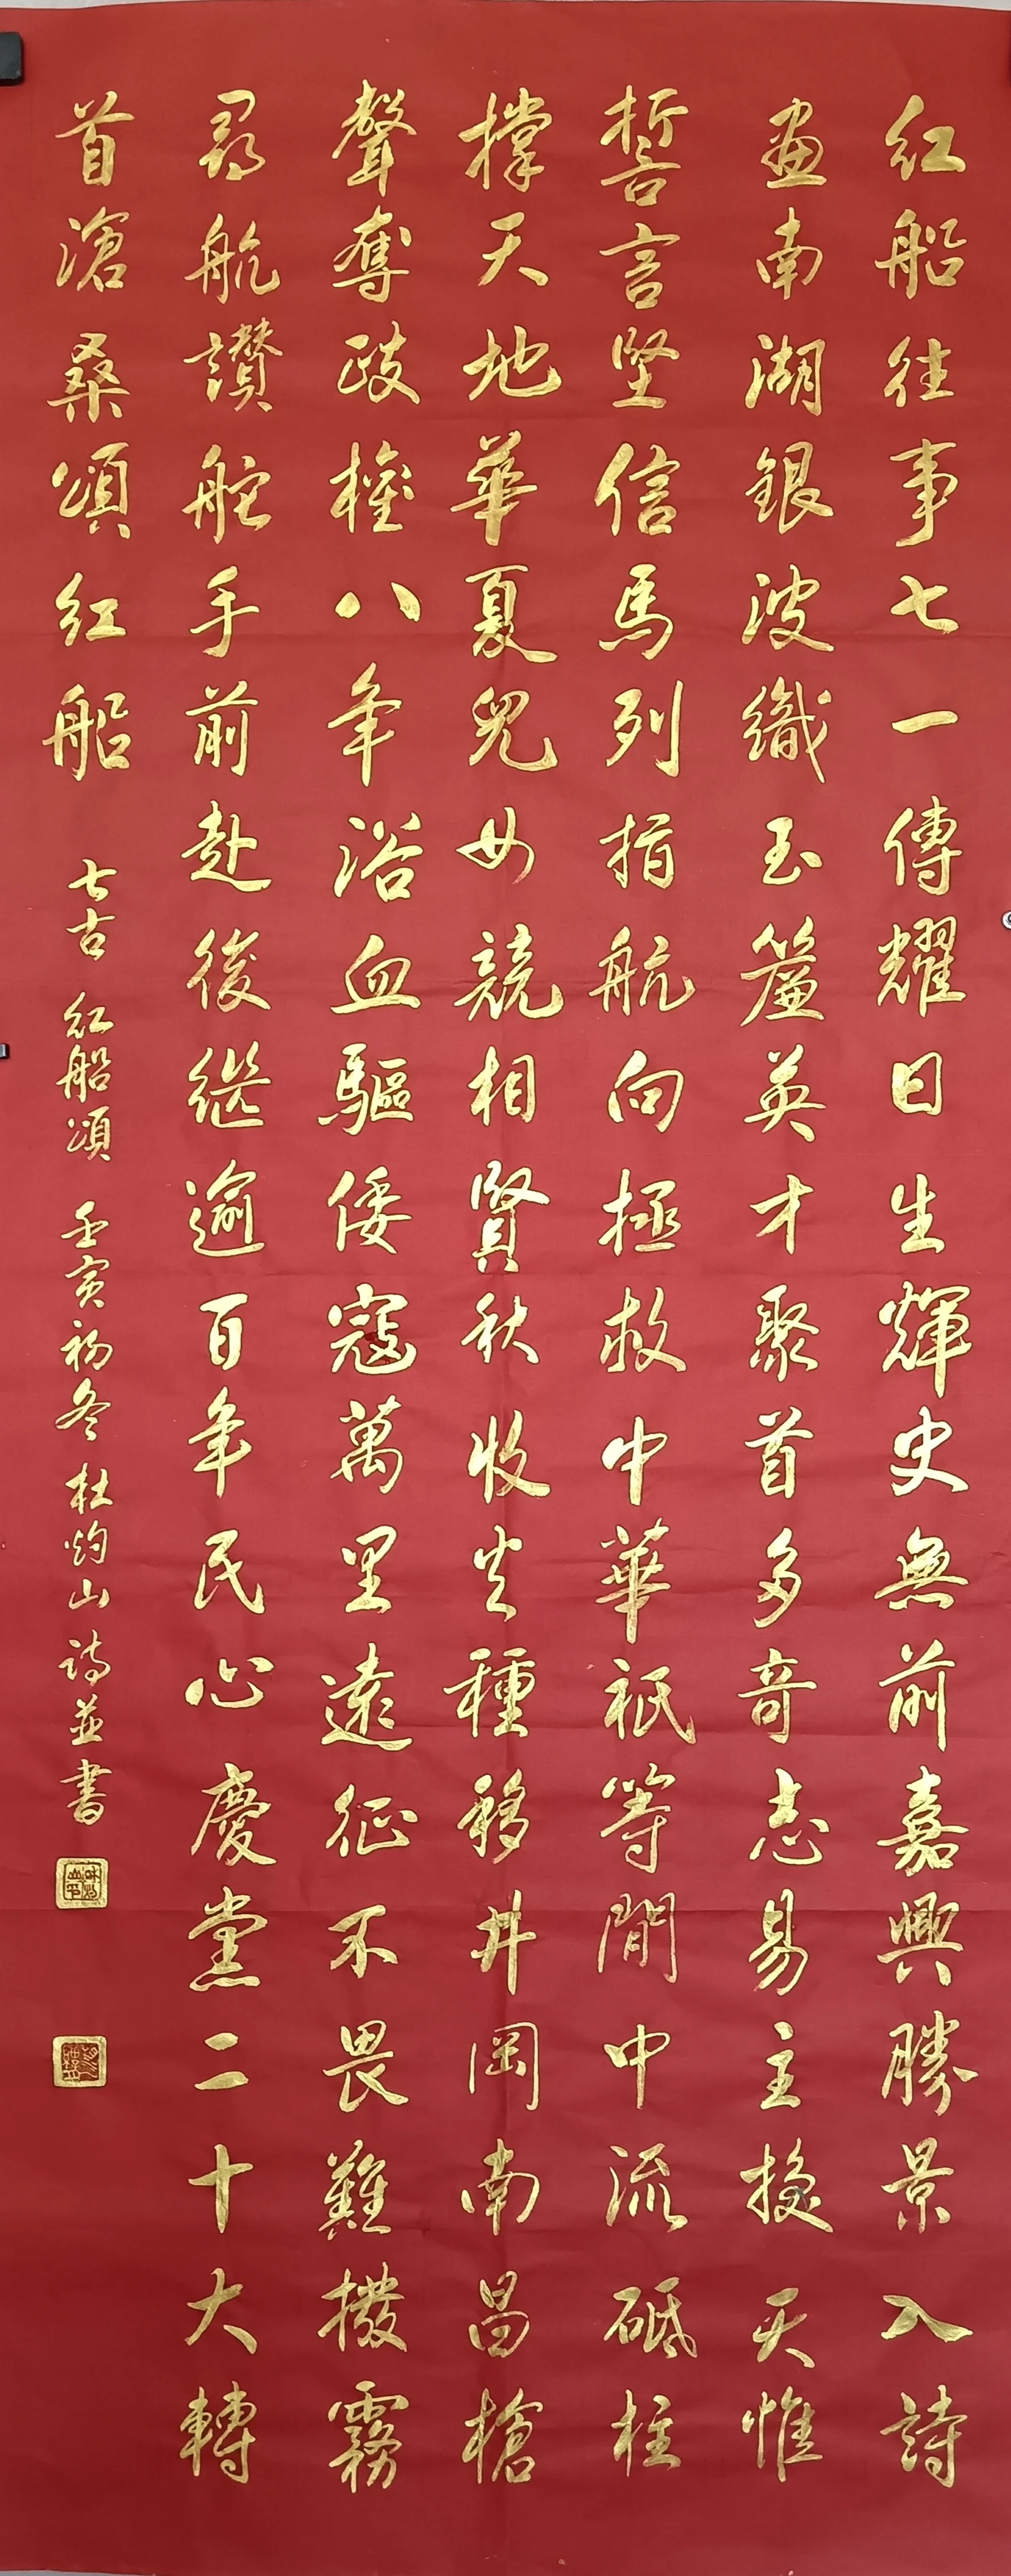 紅船往事七一傳耀日生輝史無前嘉興勝景入詩
畫南湖銀波織玉簾英才聚首多奇志易主換天惟
誓言堅信馬列指航向拯救中華祇等閒中流砥柱
撐天地華夏兒女競相賢秋收火種移井岡南昌槍
聲奪政權八年浴血驅倭寇萬里遠征不畏難撥霧
尋航讚舵手前赴後繼逾百年民心慶黨二十大轉
首滄桑頌紅船
七古 紅船頌 壬寅初冬 杜灼山 詩並書